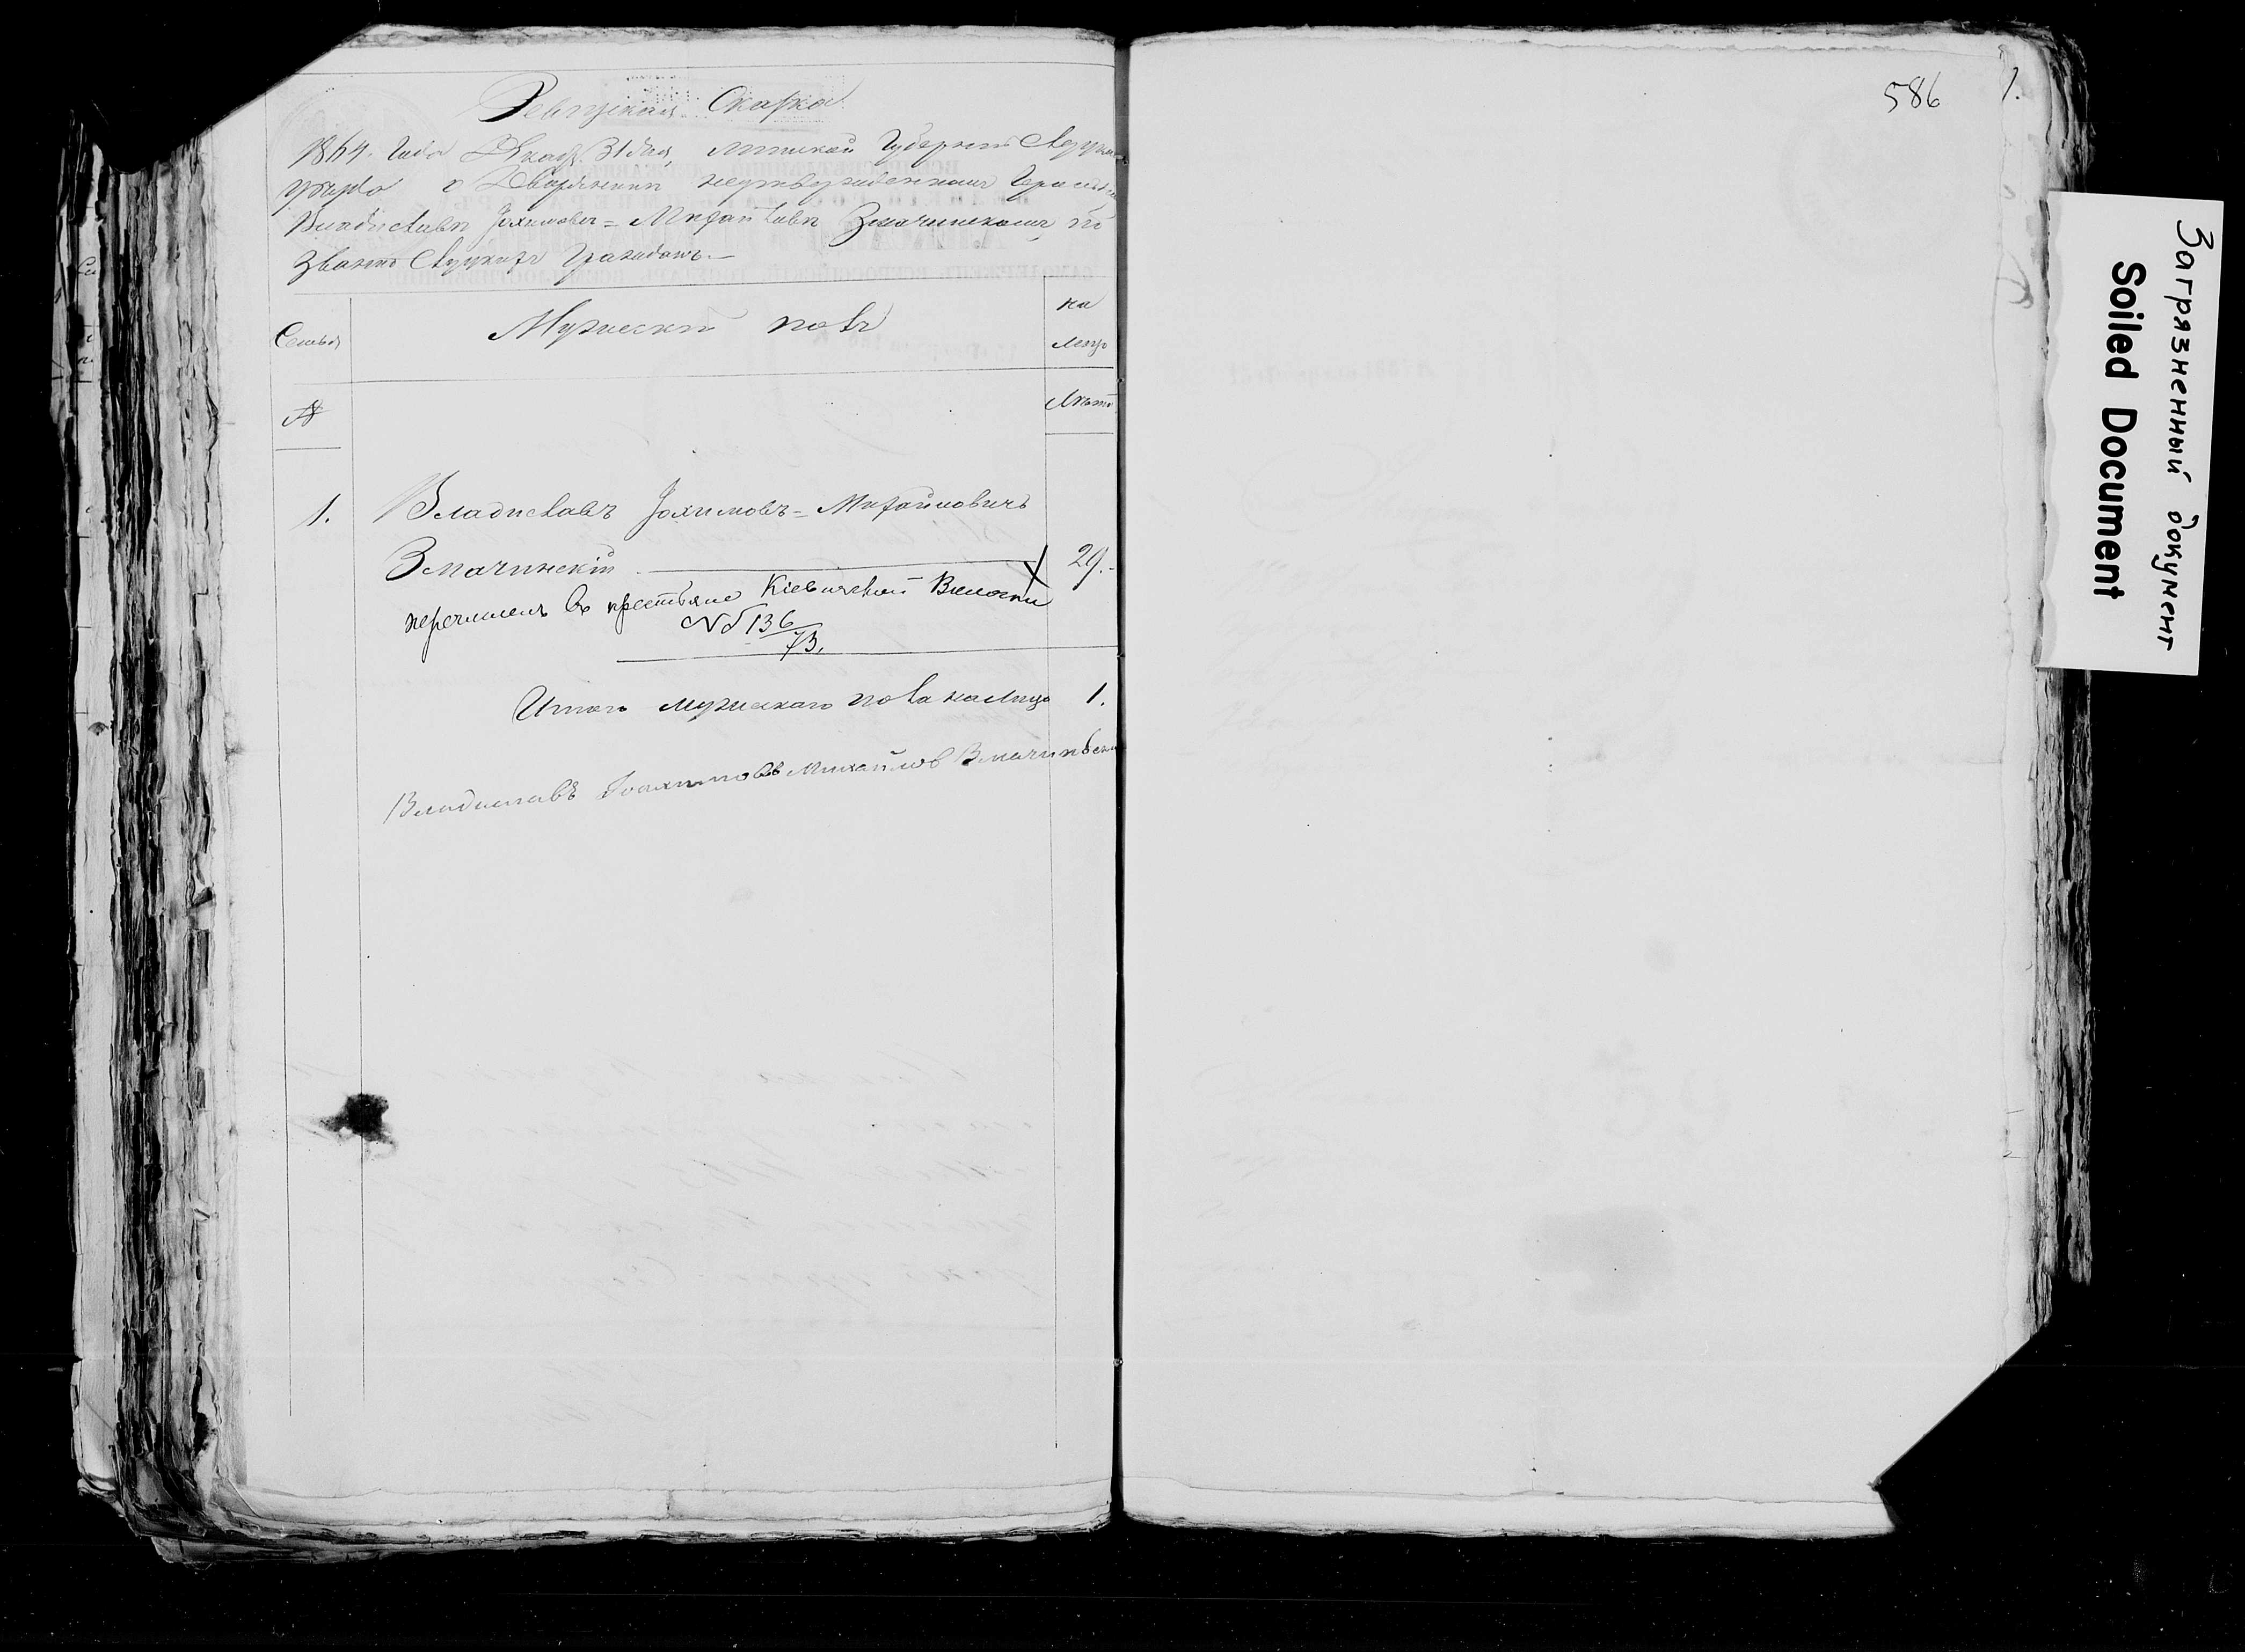 Ревизская Сказка
1864. Года Декаб. 31 дня, Минской Губернии Слуцка
уезда о Дворянинѣ неутвержденномъ
Владиславѣ Іохимовѣ= Михайловѣ Змачинскомъ, по
званію Слуцкихъ Гражданъ.—
Семья
Мужескій полъ
на
лицо
№
Лѣта
1. Владиславъ Іохимовъ= Михайловичъ
Змачинскій 29.
перечисленъ въ крестьяне Кіевичской Волости
№ 136/73.
Итого мужескаго пола на лицо 1.
Владиславъ Іоахимовъ Михайлов Змачинбски
586 1.
Загрязненный документ
Soiled Document